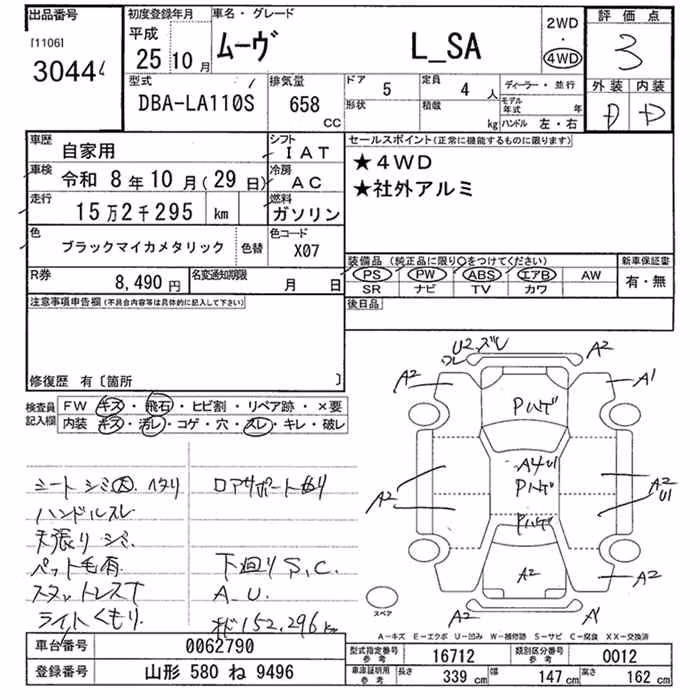 出品番号
[1106]
3044
初度登録年月
平成
25 10月
車名・グレード
ムーヴ L_SA
2WD
・
4WD
評価点
3
外装 内装
D D
型式
DBA-LA110S
排気量
658 CC
ドア 5
形状
定員 4 人
積載 kg
ディーラー・並行
モデル年式 年
ハンドル 左・右
車歴
自家用
シフト
IAT
車検
令和 8年 10月(29日)
冷房
AC
走行
15万2千295 km
燃料
ガソリン
色
ブラックマイカメタリック
色替
色コード
X07
R券
8,490円
名変通知期限
月 日
セールスポイント(正常に機能するものに限ります)
★4WD
★社外アルミ
装備品 (純正品に限り〇をつけてください)
PS PW ABS エアB AW
SR ナビ TV カワ
新車保証書
有・無
後日品
注意事項申告欄(不具合内容等は具体的に記入して下さい)
修復歴 有〔箇所 〕
検査員記入欄
FW キズ・飛石・ヒビ割・リペア跡・×要
内装 キズ・汚レ・コゲ・穴・スレ・キレ・破レ
シート シミ大 ヘタリ
ハンドルスレ
天張り シミ
ペット毛有
スタットレスT
ライトくもり
ロアサポート曲り
下廻り S,C.
A.U.
152,296km
U2.ズレ
ワレ
A2
A2
A1
Pハゲ
A4 U1
Pハゲ
Pハゲ
A2
A2
U1
A2
A2
A2
A2
A1
スペア
A-キズ E-エクボ U-凹み W-補修跡 S-サビ C-腐食 XX-交換済
車台番号 0062790
登録番号 山形 580 ね 9496
型式指定番号 参考 16712
類別区分番号 参考 0012
車庫証明用 参考 長さ 339 cm 幅 147 cm 高さ 162 cm